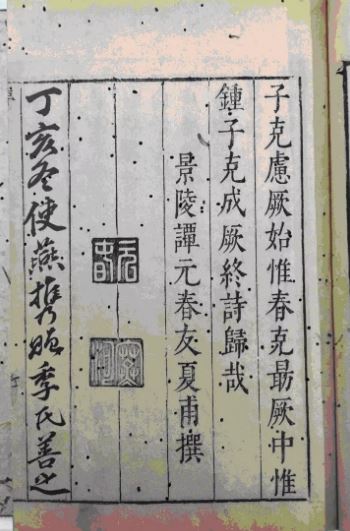 子克慮厥始惟春克朂厥中惟
鍾子克成厥終詩歸哉
景陵譚元春友夏甫撰
元春
寒河
丁亥冬使燕携季氏善之